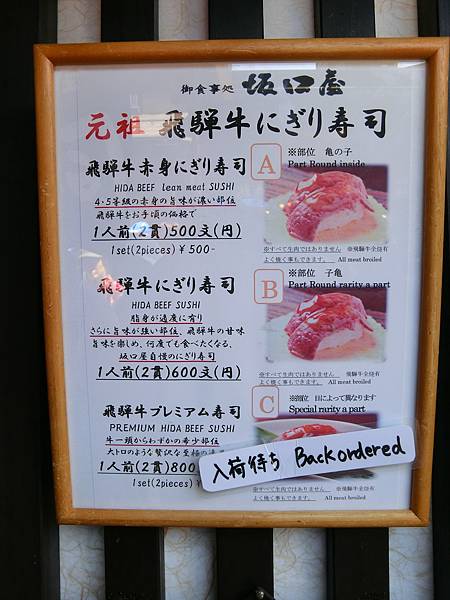 御食事処 坂口屋
元祖 飛騨牛にぎり寿司
飛騨牛赤身にぎり寿司
HIDA BEEF lean meat SUSHI
4・5等級の赤身の旨味が濃い部位
飛騨牛をお手頃の価格で
1人前(2貫)500文(円)
1set(2pieces) ¥500-
A
※部位 亀の子
Part Round inside
※すべて生肉ではありません ※飛騨牛全頭有
よく焼く事もできます。 All meat broiled
飛騨牛にぎり寿司
HIDA BEEF SUSHI
脂身が適度に有り
さらに旨味が強い部位、飛騨牛の甘味
旨味を楽しめ、何度でも食べたくなる、
坂口屋自慢のにぎり寿司
1人前(2貫)600文(円)
B
※部位 子亀
Part Round rarity a part
※すべて生肉ではありません
よく焼く事もできます。 All meat broiled
飛騨牛プレミアム寿司
PREMIUM HIDA BEEF SUSHI
牛一頭からわずかの希少部位
大トロのような贅沢な至極の
1人前(2貫)800
1set(2pieces) ¥
C
※部位 日によって異なります
Special rarity a part
入荷待ち Backordered
※すべて生肉ではありません
よく焼く事もできます。 All meat broiled